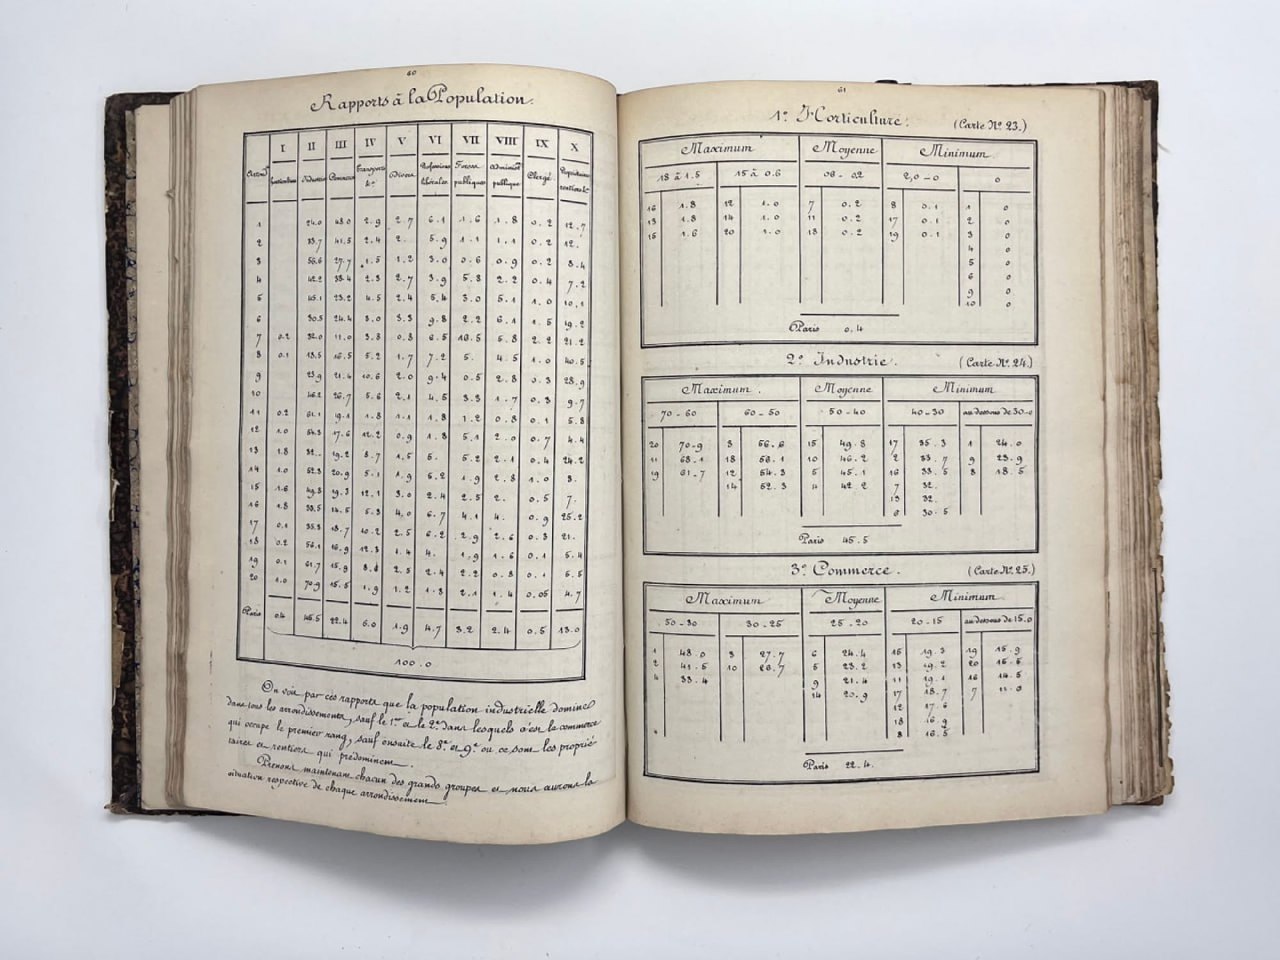 60
Rapports à la Population.
I II III IV V VI VII VIII IX X
Arrondts Horticulture Industrie Commerce Transports &a Divers Professions libérales Forces publiques Administon publique Clergé Propriétaires rentiers &a
1 24.0 48.0 2.9 2.7 6.1 1.6 1.8 0.2 12.7
2 33.7 41.5 2.4 2. 5.9 1.1 1.1 0.2 12.
3 56.6 27.7 1.5 1.2 3.0 0.6 0.9 0.2 8.4
4 42.2 33.4 2.3 2.7 3.9 5.8 2.2 0.4 7.2
5 45.1 23.2 4.5 2.4 5.4 3.0 5.1 1.0 10.1
6 30.5 24.4 3.0 3.3 9.8 2.2 6.1 1.5 19.2
7 0.2 32.0 11.0 3.8 0.8 6.5 16.5 5.8 2.2 21.2
8 0.1 18.5 16.5 5.2 1.7 7.2 5. 4.5 1.0 40.5
9 23.9 21.4 10.6 2.0 9.4 0.5 2.8 0.3 28.9
10 46.2 26.7 5.6 2.1 4.5 3.3 1.7 0.3 9.7
11 0.2 68.1 19.1 1.8 1.1 1.8 1.2 0.8 0.1 5.8
12 1.0 54.3 17.6 12.2 0.9 1.8 5.1 2.0 0.7 4.4
13 1.8 32. 19.2 8.7 1.5 5. 5.2 2.1 0.4 24.2
14 1.0 52.3 20.9 5.1 1.9 5.2 1.9 2.8 1.0 8.
15 1.6 49.8 19.3 12.1 3.0 2.4 2.5 2. 0.5 7.
16 1.8 33.5 14.5 5.3 4.0 6.7 4.1 4. 0.9 25.2
17 0.1 35.3 18.7 10.2 2.5 6.2 2.9 2.6 0.3 21.
18 0.2 56.1 16.9 12.3 1.4 4. 1.9 1.6 0.1 5.4
19 0.1 61.7 15.9 8.6 2.5 2.4 2.2 0.8 0.1 5.5
20 1.0 70.9 15.5 1.9 1.2 1.8 2.1 1.4 0.05 4.7
Paris 0.4 45.5 22.4 6.0 1.9 4.7 3.2 2.4 0.5 13.0
100.0
On voit par ces rapports que la population industrielle domine
dans tous les arrondissements, sauf le 1er et le 2e dans lesquels c'est le commerce
qui occupe le premier rang, sauf ensuite le 8e et 9e ou ce sont les proprié-
taires et rentiers qui prédominent.
Prenons maintenant chacun des grands groupes et nous aurons la
situation respective de chaque arrondissement
61
1° Horticulture. (Carte No 23.)
Maximum Moyenne Minimum
18 à 1.5 15 à 0.6 06-02 2,0-0 0
16 1.8 12 1.0 7 0.2 8 0.1 1 0
13 1.8 14 1.0 11 0.2 17 0.1 2 0
15 1.6 20 1.0 18 0.2 19 0.1 3 0
4 0
5 0
6 0
9 0
10 0
Paris 0.4
2° Industrie. (Carte No 24.)
Maximum. Moyenne Minimum
70-60 60-50 50-40 40-30 au dessous de 30.0
20 70.9 3 56.6 15 49.8 17 35.3 1 24.0
11 68.1 18 56.1 10 46.2 2 33.7 9 23.9
19 61.7 12 54.3 5 45.1 16 33.5 8 18.5
14 52.3 4 42.2 7 32.
13 32.
6 30.5
Paris 45.5
3° Commerce. (Carte No 25.)
Maximum Moyenne Minimum
50-30 30-25 25-20 20-15 au dessous de 15.0
1 48.0 3 27.7 6 24.4 15 19.3 19 15.9
2 41.5 10 26.7 5 23.2 13 19.2 20 15.5
4 33.4 9 21.4 11 19.1 16 14.5
14 20.9 17 18.7 7 11.0
12 17.6
18 16.9
8 16.5
Paris 22.4.